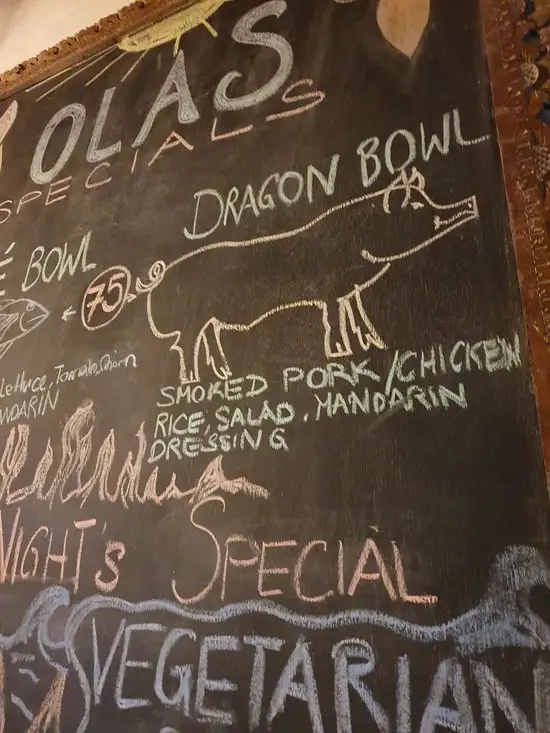 OLAS
SPECIALS
DRAGON BOWL
BOWL
75
Lettuce, Tomato,
SMOKED PORK/CHICKEN
RICE, SALAD, MANDARIN
DRESSING
NIGHT's SPECIAL
VEGETARIAN